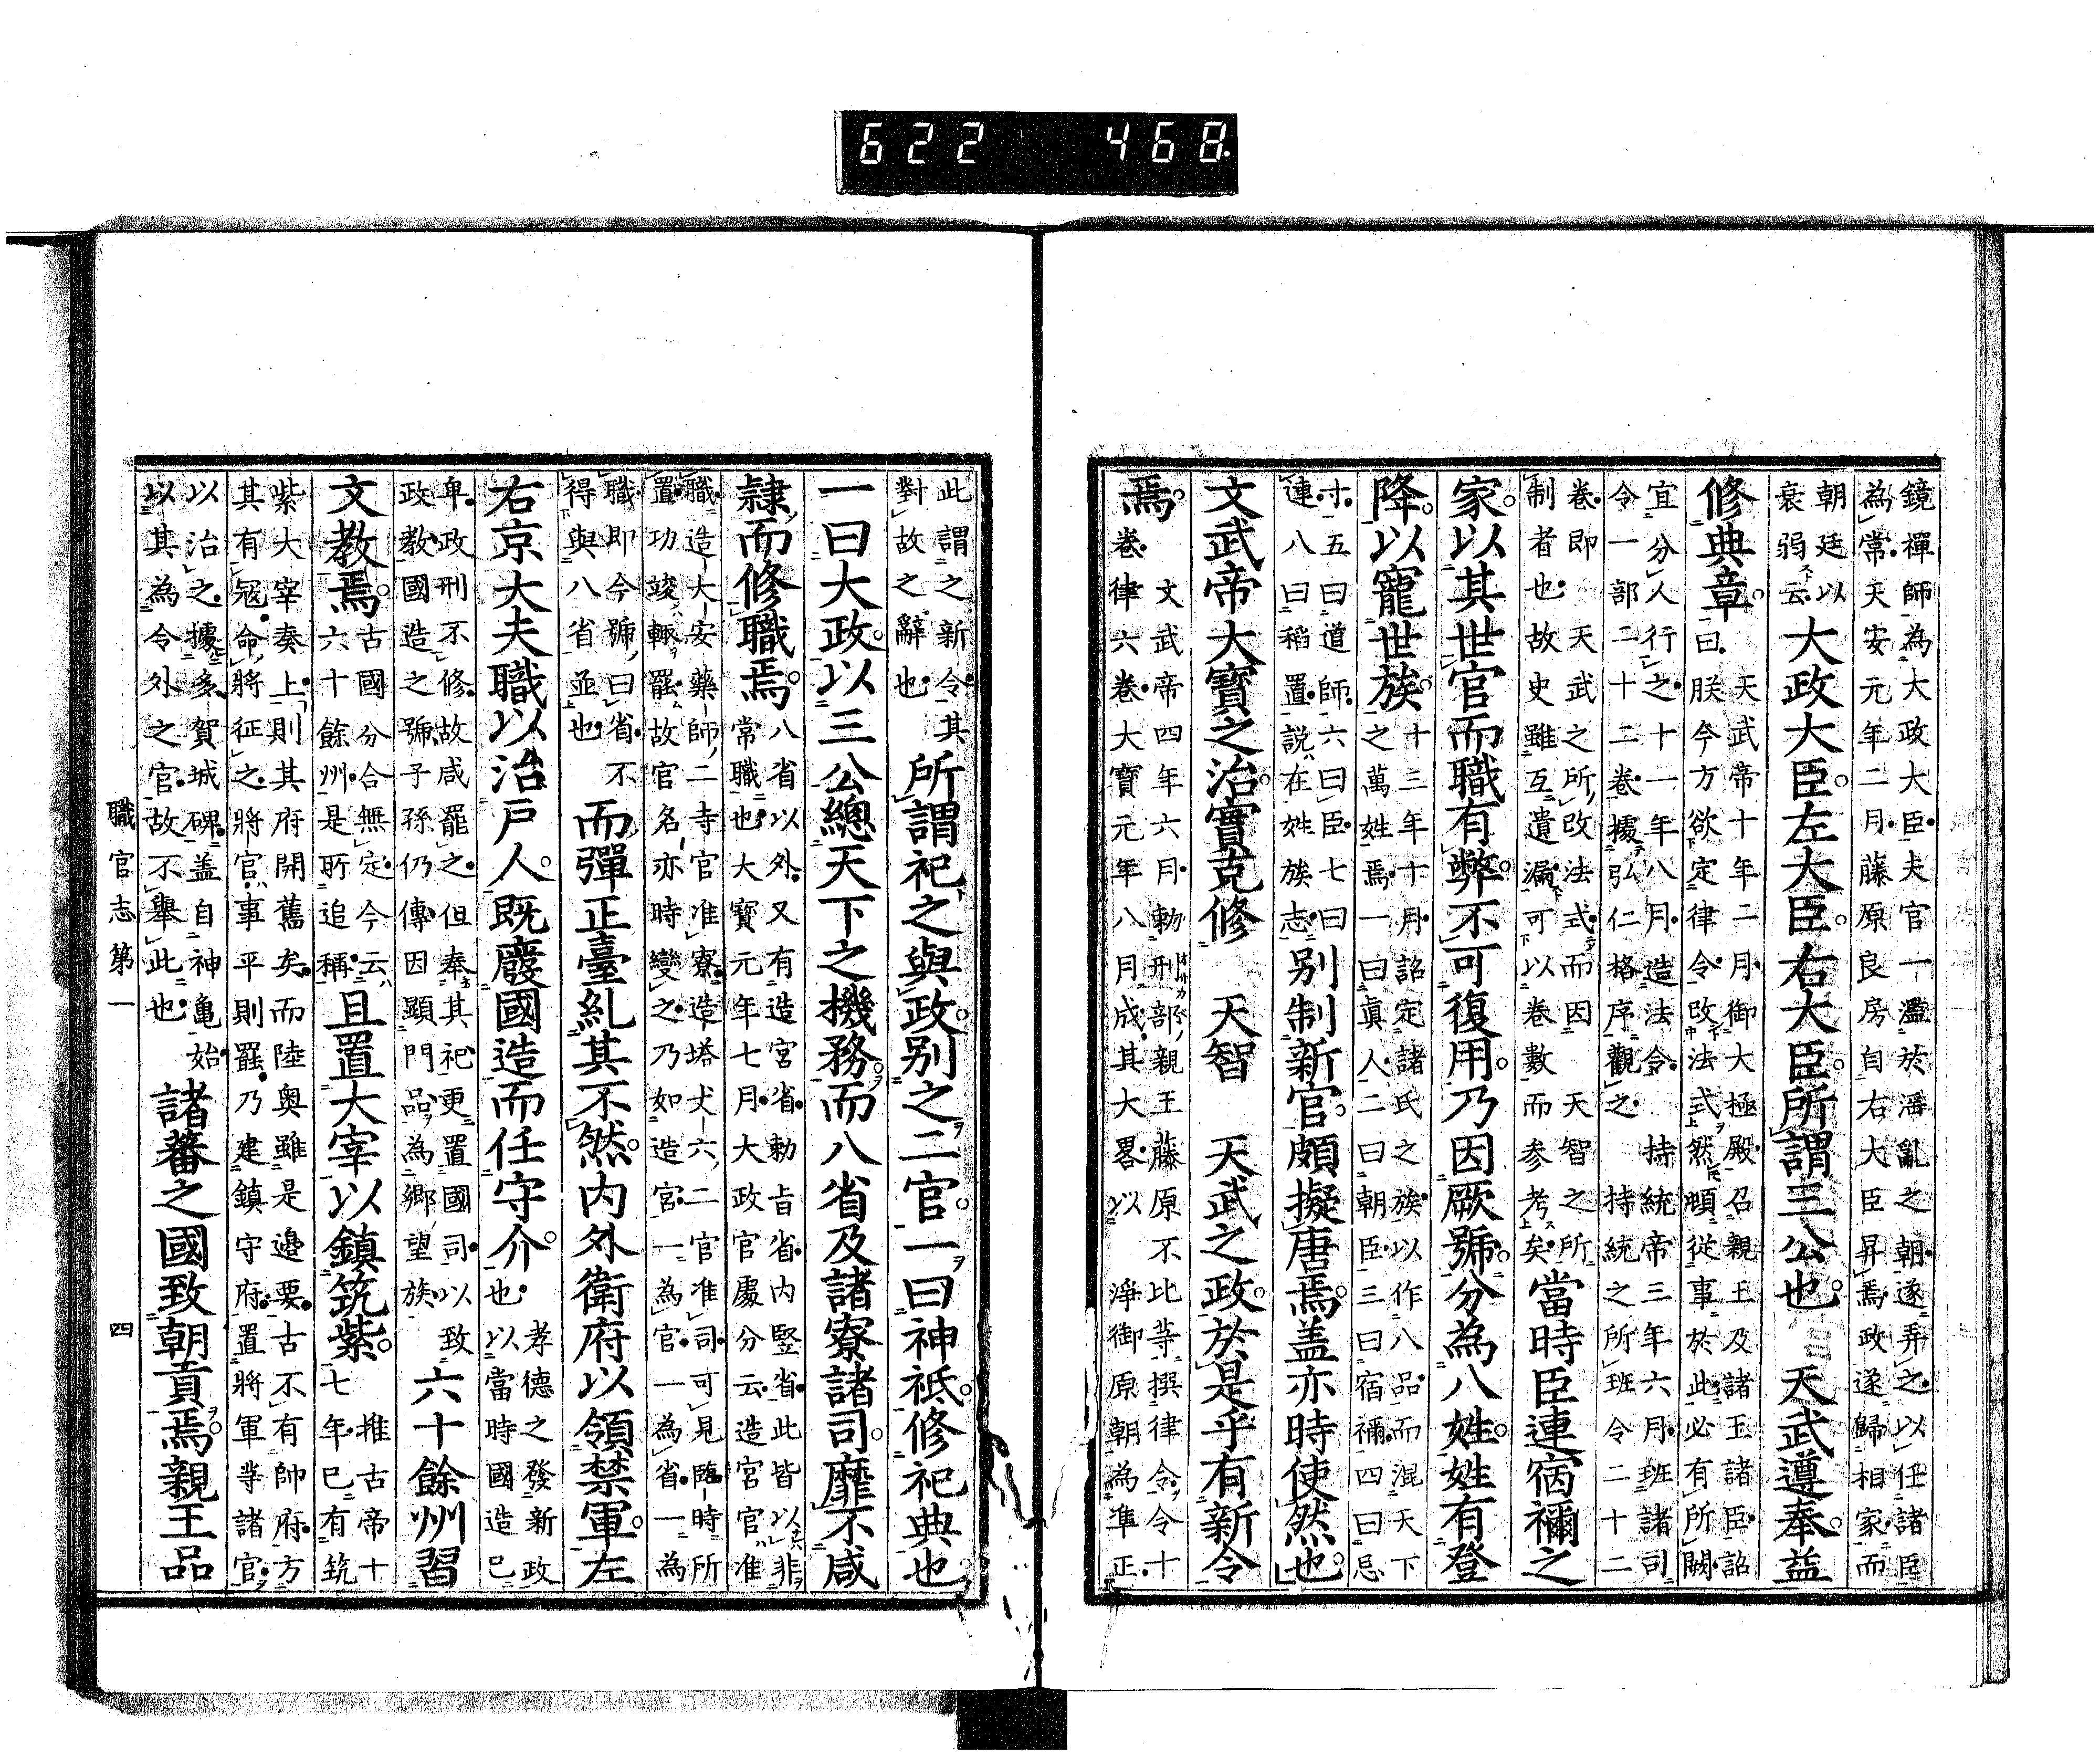 622 468
鏡禪師為大政大臣夫官一濫於潘亂之朝遂弄之以任諸臣
為常天安元年二月藤原良房自右大臣昇焉政遂歸相家而
朝廷以
衰弱云
大政大臣左大臣右大臣所謂三公也 天武遵奉益
修典章
天武帝十年二月御大極殿召親王及諸王諸臣詔
曰朕今方欲定律令改法式然頓從事於此必有所闕
宜分人行之十一年八月造法令 持統帝三年六月班諸司
令一部二十二卷據弘仁格序觀之 持統之所班令二十二
卷即 天武之所改法式而因 天智之所
制者也故史雖互遺漏可以卷數而參考矣
當時臣連宿禰之
家以其世世官而職有弊不可復用乃因厥號分為八姓姓有登
降以寵世族
十三年十月詔定諸氏之族以作八品而混天下
之萬姓焉一曰真人二曰朝臣三曰宿禰四曰忌
寸五曰道師六曰臣七曰
連八曰稻置說在姓族志
別制新官頗擬唐焉盖亦時使然也
文武帝大寶之治實克修 天智 天武之政於是乎有新令
焉
文武帝四年六月勅刑部親王藤原不比等撰律令令十
卷律六卷大寶元年八月成其大畧以 淨御原朝為準正
此謂之新令其
對故之辭也
所謂祀之與政別之二官一曰神祇修祀典也
一曰大政以三公總天下之機務而八省及諸寮諸司靡不咸
隷而修職焉
八省以外又有造宮省勅旨省内竪省此皆以非
常職也大寶元年七月大政官處分云造宮官准
職造大安藥師二寺官准寮造塔丈六二官准司可見臨時所
置功竣輙罷故官名亦時變之乃如造宮一為官一為省一為
職即今號曰省不
得與八省並也
而彈正臺糺其不然内外衛府以領禁軍左
右京大夫職以治戸人既廢國造而任守介
孝德之發新政
也以當時國造已
卑政刑不修故咸罷之但奉其祀更置國司以致
政教國造之號子孫仍傳因顯門品為鄉望族
六十餘州習
文教焉
古國分合無定今云
六十餘州是所追稱
且置大宰以鎮筑紫
推古帝十
七年已有筑
紫大宰奏上則其府開舊矣而陸奥雖是邊要古不有帥府方
其有冦命將征之將官事平則罷乃建鎮守府置將軍等諸官
以治之據多賀城碑盖自神亀始
以其為令外之官故不舉此也
諸蕃之國致朝貢焉親王品
職官志第一 四